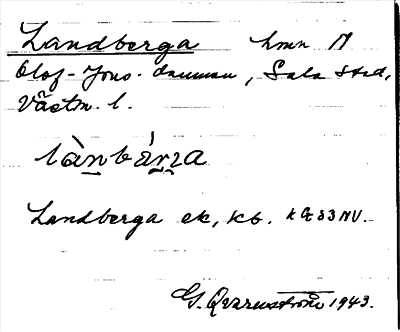 Landberga hmn N
Olof-Jons-dammen, Sala stad,
Västm. l.
lànbárɹa
Landberga ek, kb.
G. Qvarnström 1943.